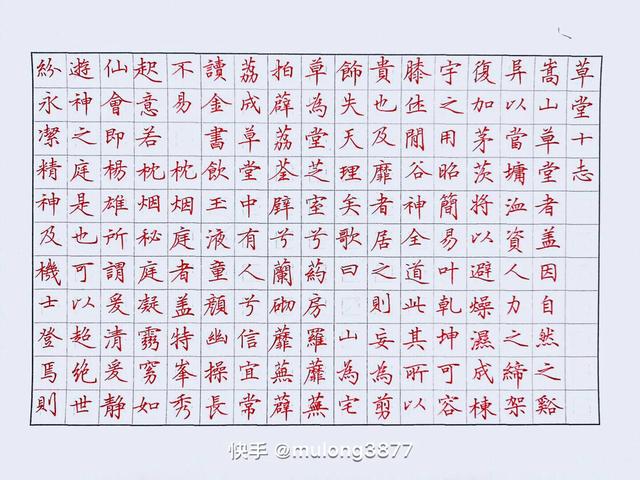 草堂十志
嵩山草堂者盖因自然之谿
异以當墉洫資人力之締架
復加茅茨將以避燥濕成棟
宇之用昭簡易叶乾坤可容
膝休閒谷神全道此其所以
貴也及靡者居之則妄為剪
飾失天理矣歌曰 山為宅
草為堂芝室兮葯房羅蘼蕪
拍薜荔荃壁兮蘭砌蘼蕪薜
荔成草堂中有人兮信宜常
讀金書飲玉液童顏幽操長
不易 枕烟庭者盖特峯秀
起意若枕烟秘庭凝霧窈如
仙會即楊雄所謂爰清爰靜
遊神之庭是也可以超絕世
紛永潔精神及機士登焉則
快手 @mulong3877